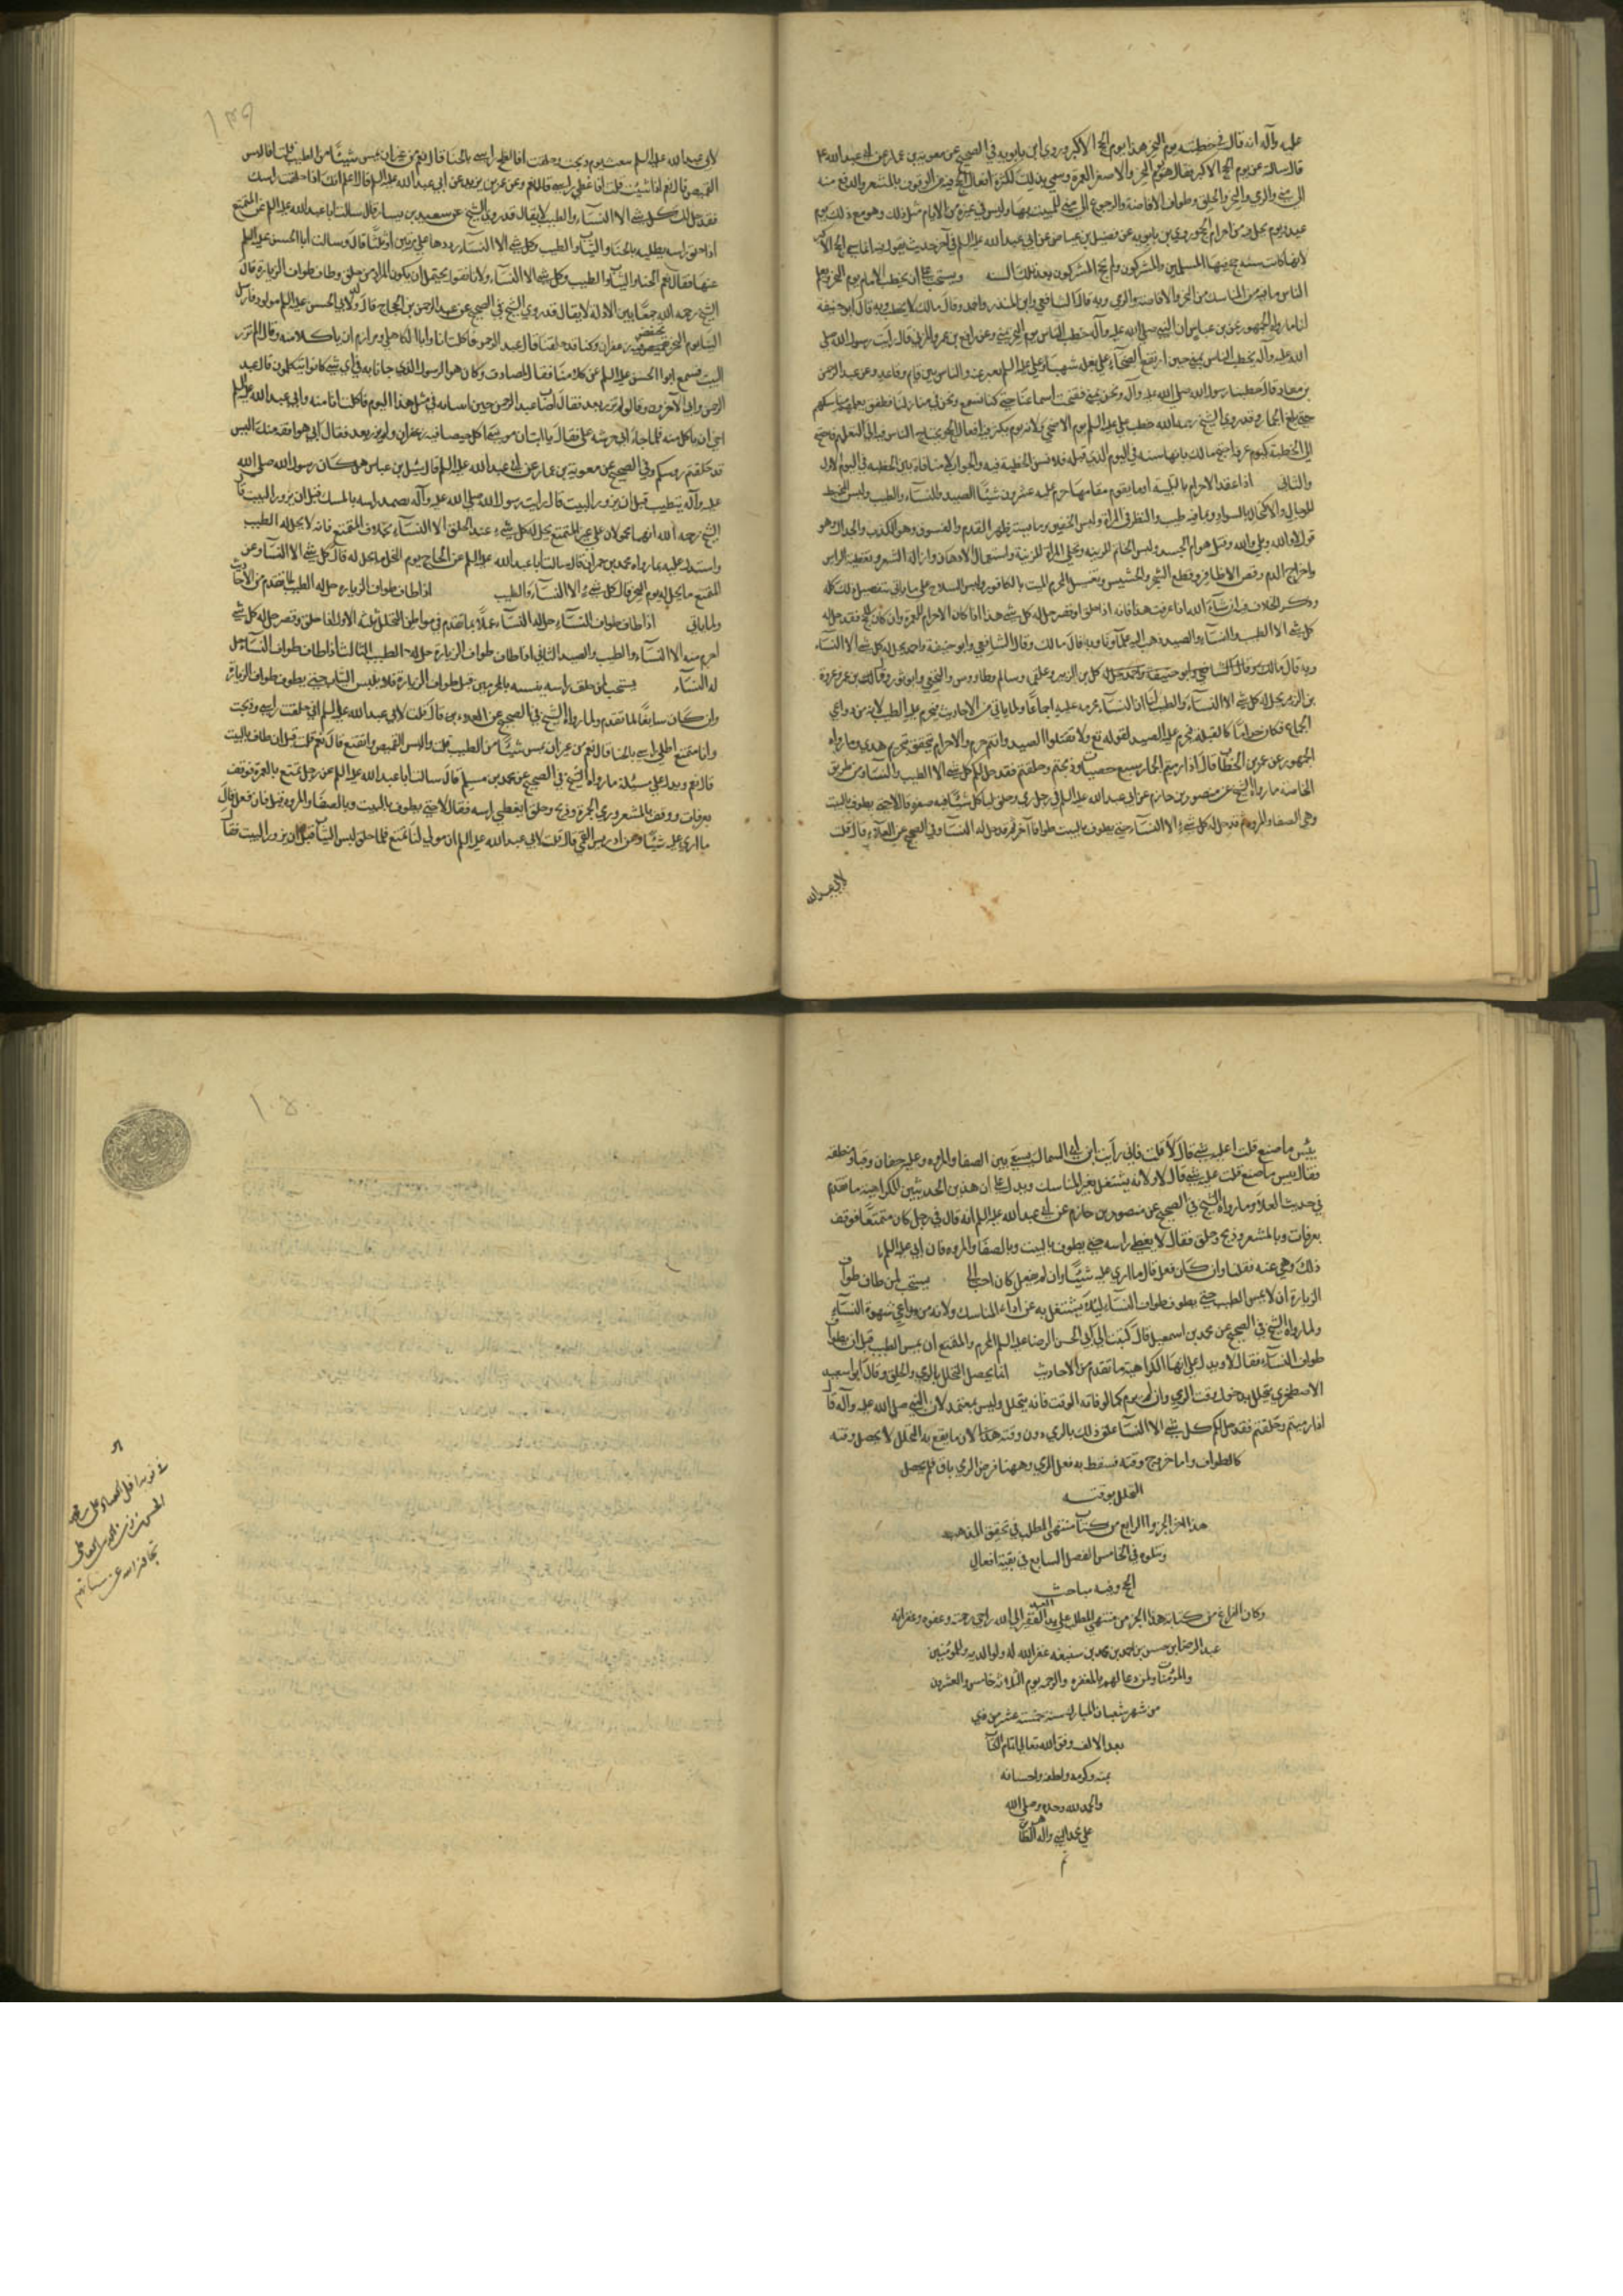 عليه وآله انه قال في خطبته يوم النحر هذا يوم الحج الاكبر وروى ابن بابويه في الصحيح عن معوية بن عمار عن ابي عبد الله ع
قال سالته عن يوم الحج الاكبر فقال هو يوم النحر والاصغر العمرة وسمي بذلك لكثرة افعال الحج فيه من الوقوف بالمشعر والدفع منه
الى منى والرمي والنحر والحلق وطواف الافاضة والرجوع الى منى للمبيت بها وليس في غيره من الايام مثل ذلك وهو مع ذلك يوم
عيد ويوم يحل فيه من احرام الحج وروى بن بابويه عن فضيل بن عياض عن ابي عبد الله عليه السلم في آخر حديث يقول فيه انما سمي الحج الاكبر
لانها كانت سنة حج فيها المسلمون والمشركون ولم يحج المشركون بعد تلك السنة ويستحب ان يخطب الامام يوم النحر ويعلم
الناس ما فيه من المناسك من النحر والافاضة والرمي وبه قال الشافعي وابن المنذر واحمد وقال مالك لا يخطب وبه قال ابو حنيفة
لنا ما رواه الجمهور عن بن عباس ان النبي صلى الله عليه وآله خطب الناس يوم النحر بمنى وعن رافع بن عمرو المزني قال رايت رسول الله صلى
الله عليه وآله يخطب الناس بمنى حين ارتفع الضحآء على بغلة شهبآ وعلي عليه السلم يعبر عنه والناس بين قيام وقاعد وعن عبد الرحمن
بن معاذ قال خطبنا رسول الله صلى الله عليه وآله ونحن بمنى ففتحت اسماعنا حتى كنا نسمع ونحن في منازلنا فطفق يعلمهم مناسكهم
حتى بلغ الجمار وقد روى الشيخ رحمه الله خطب علي عليه السلم يوم الاضحى ولانه يوم يكثر فيه افعال الحج ويحتاج الناس فيه الى التعلم فاحتيج
الى الخطبة كيوم عرفة احتج مالك بانها سنة في اليوم الذي قبله فلا تسن الخطبة فيه والجواب لا منافاة بين الخطبة في اليوم الاول
والثاني اذا عقد الاحرام بالتلبية او ما يقوم مقامها حرم عليه عشرون شيئًا الصيد والنسآء والطيب ولبس المخيط
للرجال والاكتحال بالسواد وبما فيه طيب والنظر في المرآة ولبس الخفين وما يستر ظهر القدم والفسوق وهو الكذب والجدال وهو
قول لا والله وبلى والله وقتل هوام الجسد ولبس الخاتم للزينة وتحلي المرآة للزينة واستعمال الادهان وازالة الشعر وتغطية الراس
واخراج الدم وقص الاظافر وقطع الشجر والحشيش وتغسيل المحرم الميت بالكافور ولبس السلاح على ما ياتي تفصيل ذلك كله
وذكر الخلاف فيه ان شآء الله اذا عرفت هذا فانه اذا حلق او قصر حل له كل شي هذا اذا كان الاحرام للعمرة وان كان للحج فقد حل له
كل شي الا الطيب والنسآء والصيد ذهب اليه علمآونا وبه قال مالك وقال الشافعي وابو حنيفة واحمد يحل له كل شي الا النسآء
وبه قال بن الزبير وعلقمة وسالم وطاووس والنخعي وابو ثور وقال بن عمر وعروة
بن الزبير يحل له كل شي الا النسآء والطيب لنا ان النسآء محرمة عليه اجماعًا ولما ياتي من الاحاديث فيحرم عليه الطيب لانه من دواعي
الجماع فكان حرامًا كالقبلة فيحرم عليه الصيد لقوله تع ولا تقتلوا الصيد وانتم حرم والاحرام يتحقق بتحريم هذين وما رواه
الجمهور عن عمر بن الخطاب قال اذا رميتم الجمار بسبع حصيات وذبحتم وحلقتم فقد حل لكم كل شي الا الطيب والنسآء ومن طريق
الخاصة ما رواه الشيخ عن منصور بن حازم عن ابي عبد الله عليه السلم في رجل رمى وحلق ايا كل شيئًا فيه صفرة قال لا حتى يطوف بالبيت
وبين الصفا والمروة ثم قد حل له كل شي الا النسآء حتى يطوف بالبيت طوافا آخر ثم قد حل له النسآء وفي الصحيح عن العلآء قال قلت
لابي عبد الله
١٣٩
لابي عبد الله عليه السلم تمتعت يوم ذبحت وحلقت افالطخ راسي بالحنا قال نعم من غير ان تمس شيئًا من الطيب قلت افالبس
القميص قال نعم اذا شئت قلت افاغطي راسي قال نعم وعن عمر بن يزيد عن ابي عبد الله عليه السلم قال اعلم انك اذا حلقت راسك
فقد حل لك كل شي الا النسآء والطيب لا يقال قد روى الشيخ عن سعيد بن يسار قال سالت ابا عبد الله عليه السلم عن المتمتع
اذا حلق راسه يطليه بالحنا والثياب والطيب وكل شي الا النسآء رددها علي مرتين او ثلثًا قال وسالت ابا الحسن عليه السلم
عنها فقال نعم الحنا والثياب والطيب وكل شي الا النسآء لانا نقول يحتمل ان يكون المراد من حلق وطاف طواف الزيارة قاله
الشيخ رحمه الله جمعًا بين الادلة لا يقال قد روى الشيخ في الصحيح عن عبد الرحمن بن الحجاج قال ولد لابي الحسن عليه السلم مولود فارسل
الينا يوم النحر بخبيص فيه زعفران وكنا قد حلقنا قال عبد الرحمن فاكلت انا وابا الكاهلي ومرازم ان ياكلا منه وقالا لم نزر
البيت فسمع ابو الحسن عليه السلم عن كلامنا فقال لمصادف وكان هو الرسول الذي جاءنا به في اي شي كانوا يتكلمون قال عبد
الرحمن وابى الآخرون وقالوا لم نزر بعد فقال اصاب عبد الرحمن حين اتينا به في مثل هذا اليوم فاكلت انا منه وابى عبد الله اخي
اخي ان ياكل منه فلما جاء ابي حرشه علي فقال يا ابت ان موسى اكل خبيصا فيه زعفران ولم يزر بعد فقال ابي هو افقه منك اليس
قد حلقتم روسكم وفي الصحيح عن معوية بن عمار عن ابي عبد الله عليه السلم قال سئل بن عباس هل كان رسول الله صلى الله
عليه وآله يتطيب قبل ان يزور البيت قال رايت رسول الله صلى الله عليه وآله يضمد راسه بالمسك قبل ان يزور البيت قال
الشيخ رحمه الله انهما محمولان على غير المتمتع يحل له كل شيء عند الحلق الا النسآء بخلاف المتمتع فانه لا يحل له الطيب
واستدل عليه بما رواه محمد بن حمران قال سالت ابا عبد الله عليه السلم عن الحاج يوم النحر ما يحل له قال كل شي الا النسآء وعن
المتمتع ما يحل له يوم النحر قال كل شيء الا النسآء والطيب اذا طاف طواف الزيارة حل له الطيب لما تقدم من الاحاديث
ولما ياتي اذا طاف طواف النسآء حل له النسآء عملًا بما تقدم فمواطن التحلل ثلثة الاول اذا حلق وقصر حل له كل شي
احرم منه الا النسآء والطيب والصيد الثاني اذا طاف طواف الزيارة حل له الطيب الثالث اذا طاف طواف النسآء حل
له النسآء يستحب لمن حلق راسه قبل طواف الزيارة فلا يلبس الثياب حتى يطوف طواف الزيارة
وان كان سايغًا لما تقدم ولما رواه الشيخ في الصحيح عن العلا بن قال قلت لابي عبد الله عليه السلم اني حلقت راسي وذبحت
وانا متمتع اطلي راسي بالحنا قال نعم من غير ان تمس شيئًا من الطيب قلت والبس القميص واتقنع قال نعم قلت قبل ان اطوف بالبيت
قال نعم ويدل على مسئلة ما رواه الشيخ في الصحيح عن محمد بن مسلم قال سالت ابا عبد الله عليه السلم عن رجل تمتع بالعمرة فوقف
بعرفات ووقف بالمشعر ورمى الجمرة وذبح وحلق ايغطي راسه فقال لا حتى يطوف بالبيت وبالصفا والمروة قيل فان فعل قال
ما ارى عليه شيئًا وعن ادريس القمي قال قلت لابي عبد الله عليه السلم ان مولى لنا تمتع فلما حلق لبس الثياب قبل ان يزور البيت فقال
بئس ما صنع قلت اعليه شي قال لا قلت فاني رايت ابن ابي السمال يسعى بين الصفا والمروة وعليه خفان وقبا ومنطقة
فقال بئس ما صنع قلت عليه شي قال لا ولانه يشتغل بغير المناسك ويدل على ان هذين الحديثين للكراهية ما تقدم
في حديث العلآ وما رواه الشيخ في الصحيح عن منصور بن حازم عن ابي عبد الله عليه السلم انه قال في رجل كان متمتعًا فوقف
بعرفات وبالمشعر وذبح وحلق فقال لا يغطي راسه حتى يطوف بالبيت وبالصفا والمروة فان ابي عليه السلم
ذلك ونهى عنه فقلنا وان كان فعل قال ما ارى عليه شيئًا وان لم يفعل كان احب الي يستحب لمن طاف طواف
الزيارة ان لا يمس الطيب حتى يطوف طواف النسآء ليلا يشتغل به عن آداء المناسك ولانه من دواعي شهوة النسآء
ولما رواه الشيخ في الصحيح عن محمد بن اسمعيل قال كتبت الى ابي الحسن الرضا عليه السلم المحرم والمتمتع ان يمس الطيب قبل ان يطوف
طواف النسآء فقال لا ويدل على انها للكراهية ما تقدم من الاحاديث انما يحصل التحلل بالرمي والحلق وقال ابو سعيد
الاصطخري يتحلل بدخول وقت الرمي وان لم يرم كما لو فاته الوقت فانه يتحلل وليس بمعتمد لان النبي صلى الله عليه وآله قال
اذا رميتم وحلقتم فقد حل لكم كل شي الا النسآء علق ذلك بالرمي دون وقته هذا لان ما يقع به التحلل لا يحصل وقته
كالطواف واما خروج وقته فسقط به فعل الرمي وههنا فرض الرمي باق فلم يحصل
التحلل بوقته
هذا آخر الجزو الرابع من كتاب منتهى المطلب في تحقيق المذهب
ويتلوه في الخامس الفصل السابع في بقية افعال
الحج وفيه مباحث
وكان الفراغ من كتابة هذا الجز من منتهى المطلب على يد العبد الفقير الى الله راجي رحمته وعفوه وغفرانه
عبد الرضا بن حسن بن احمد بن محمد بن غفر الله له ولوالديه وللمؤمنين
والمؤمنات ولمن دعا لهم بالمغفرة والرحمة يوم الثلاثا خامس والعشرون
من شهر شعبان المبارك سنة خمسة عشر من مني
بعد الالف وفق الله تعالى اتمام الكتاب
بمنه وكرمه ولطفه واحسانه
والحمد لله وحده وصلى الله
على محمد النبي وآله الطاهرين
تم
١٠٥٠